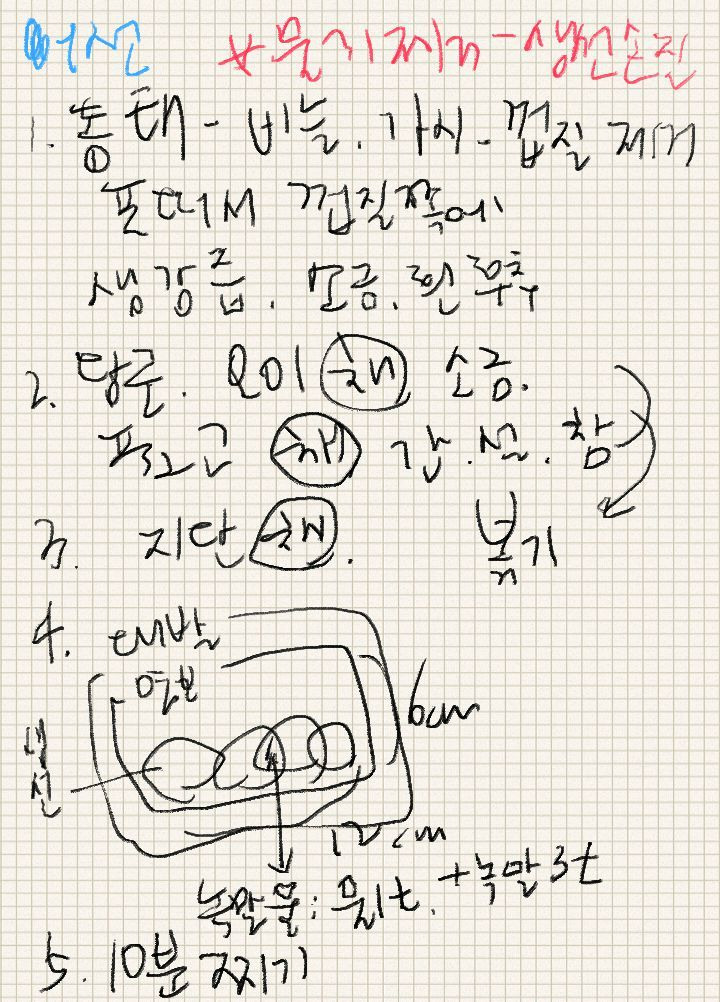 어선 *물기제거-생선손질
1. 동태 - 비늘. 가시. 껍질 제거
①
포떠서 껍질쪽에
생강즙. 소금. 흰후추
2. 당근. 오이 채 소금.
표고 채 간.설.참
3. 지단 채. 볶기
4. 대발
면보
생선
6cm
12cm
녹말물: 물1t. +녹말3t
5. 10분 찌기